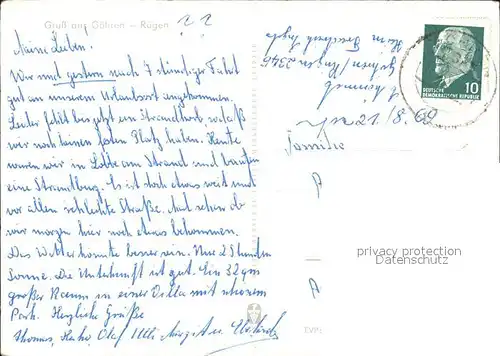 Gruß aus Göhren – Rügen
Meine Lieben.
Wir sind gestern nach 7 stündiger Fahrt
gut an unserem Urlaubsort angekommen.
Leider fehlt bis jetzt ein Strandkorb, so daß
wir noch keinen festen Platz haben. Heute
waren wir in Lobbe am Strand und bauten
eine Strandburg. Es ist doch etwas weit und
vor allen schlechte Straße. Mal sehen ob
wir morgen hier noch etwas bekommen.
Das Wetter könnte besser sein. Nur 2 Stunden
Sonne. Die Unterkunft ist gut. Ein 32 qm
großer Raum in einer Villa mit schönem
Park. Herzliche Grüße
Thomas, Olaf
Göhren/Rügen 2345
21/8.69
Familie
A
A
10
DEUTSCHE
DEMOKRATISCHE REPUBLIK
privacy protection
Datenschutz